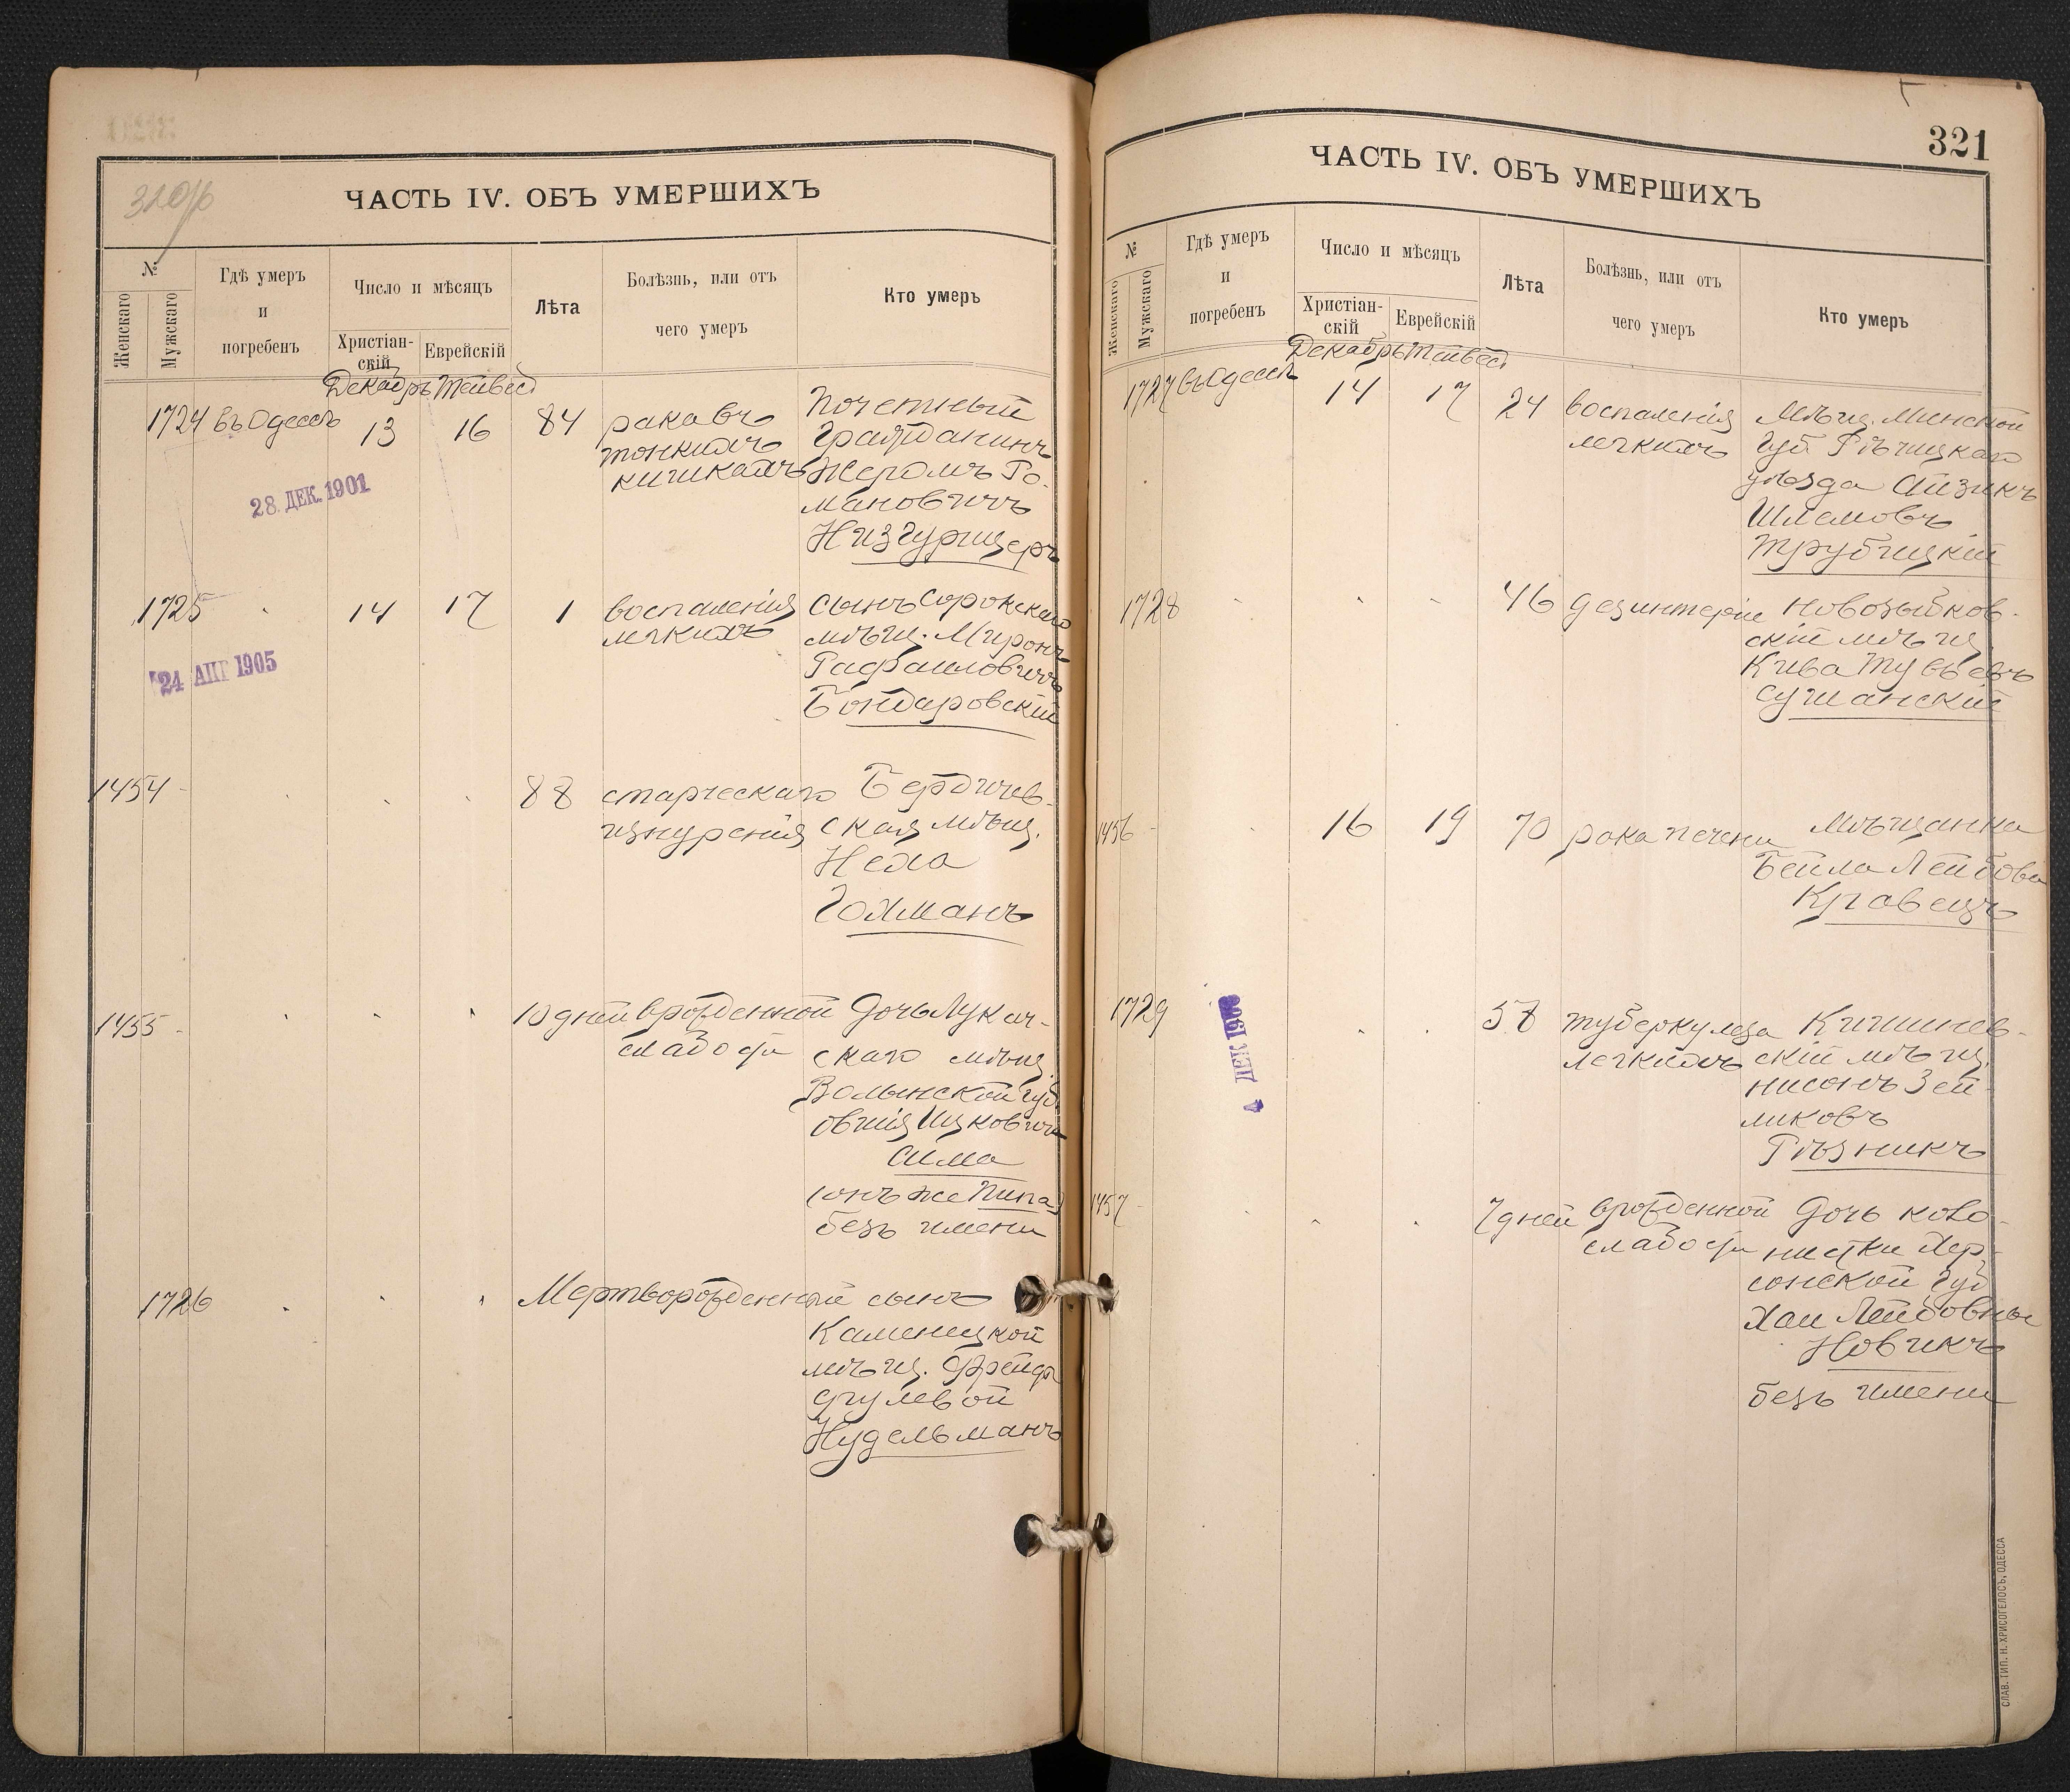 ЧАСТЬ IV. ОБЪ УМЕРШИХЪ
№
Женскаго
Мужскаго
Гдѣ умеръ
и
погребенъ
Число и мѣсяцъ
Христіан-
скій
Еврейскій
Лѣта
Болѣзнь, или отъ
чего умеръ
Кто умеръ
Декабрь Тейвесъ
1724 въ Одессѣ 13 16 84
рака въ
тонкихъ
кишкахъ
Почетный
Гражданинъ
Жеромъ Ро-
мановичъ
Низгурицеръ
28. ДЕК. 1901
1725 " 14 17 1
воспаленія
легкихъ
сынъ Сорокскаго
мѣщ. Миронъ
Рафаиловичъ
Бондаровскій
24 АПР 1905
1454 " " " 88
старческаго
изнуренія
Бердичев-
ская мѣщ.
Неха
Гохманъ
1455 " " " 10 дней
врожденной
слабости
Дочь Лукач-
скаго мѣщ.
Волынской губ.
Овшія Ицковича
Сима
(онъ же Пипа)
безъ имени
1726 " " "
Мертворожденный сынъ
Каменецкой
мѣщ. Фрейды
Нудельманъ
321
ЧАСТЬ IV. ОБЪ УМЕРШИХЪ
№
Женскаго
Мужскаго
Гдѣ умеръ
и
погребенъ
Число и мѣсяцъ
Христіан-
скій
Еврейскій
Лѣта
Болѣзнь, или отъ
чего умеръ
Кто умеръ
Декабрь Тейвесъ
1727 въ Одессѣ 14 17 24
воспаленія
легкихъ
Мѣщ. Минской
губ Рѣчицкаго
уѣзда Айзикъ
Шлемовъ
Трубицкій
1728 " " " 46
дезинтеріи
Новозыбков-
скій мѣщ
Кива Тувьевъ
Сушанскій
1456 " 16 19 70
рака печени
Мѣщанка
Бейла Лейбова
Кравецъ
1729 " " 58
туберкулеза
легкихъ
Кишинев-
скій мѣщ.
Нисонъ Зей-
ликовъ
Рѣзникъ
1457 " " " 7 дней
врожденной
слабости
Дочь коло-
нистки Хер-
сонской губ
Хаи Лейбовны
Новикъ
безъ имени
СЛАВ. ТИП. Н. ХРИСОГЕЛОСЪ, ОДЕССА